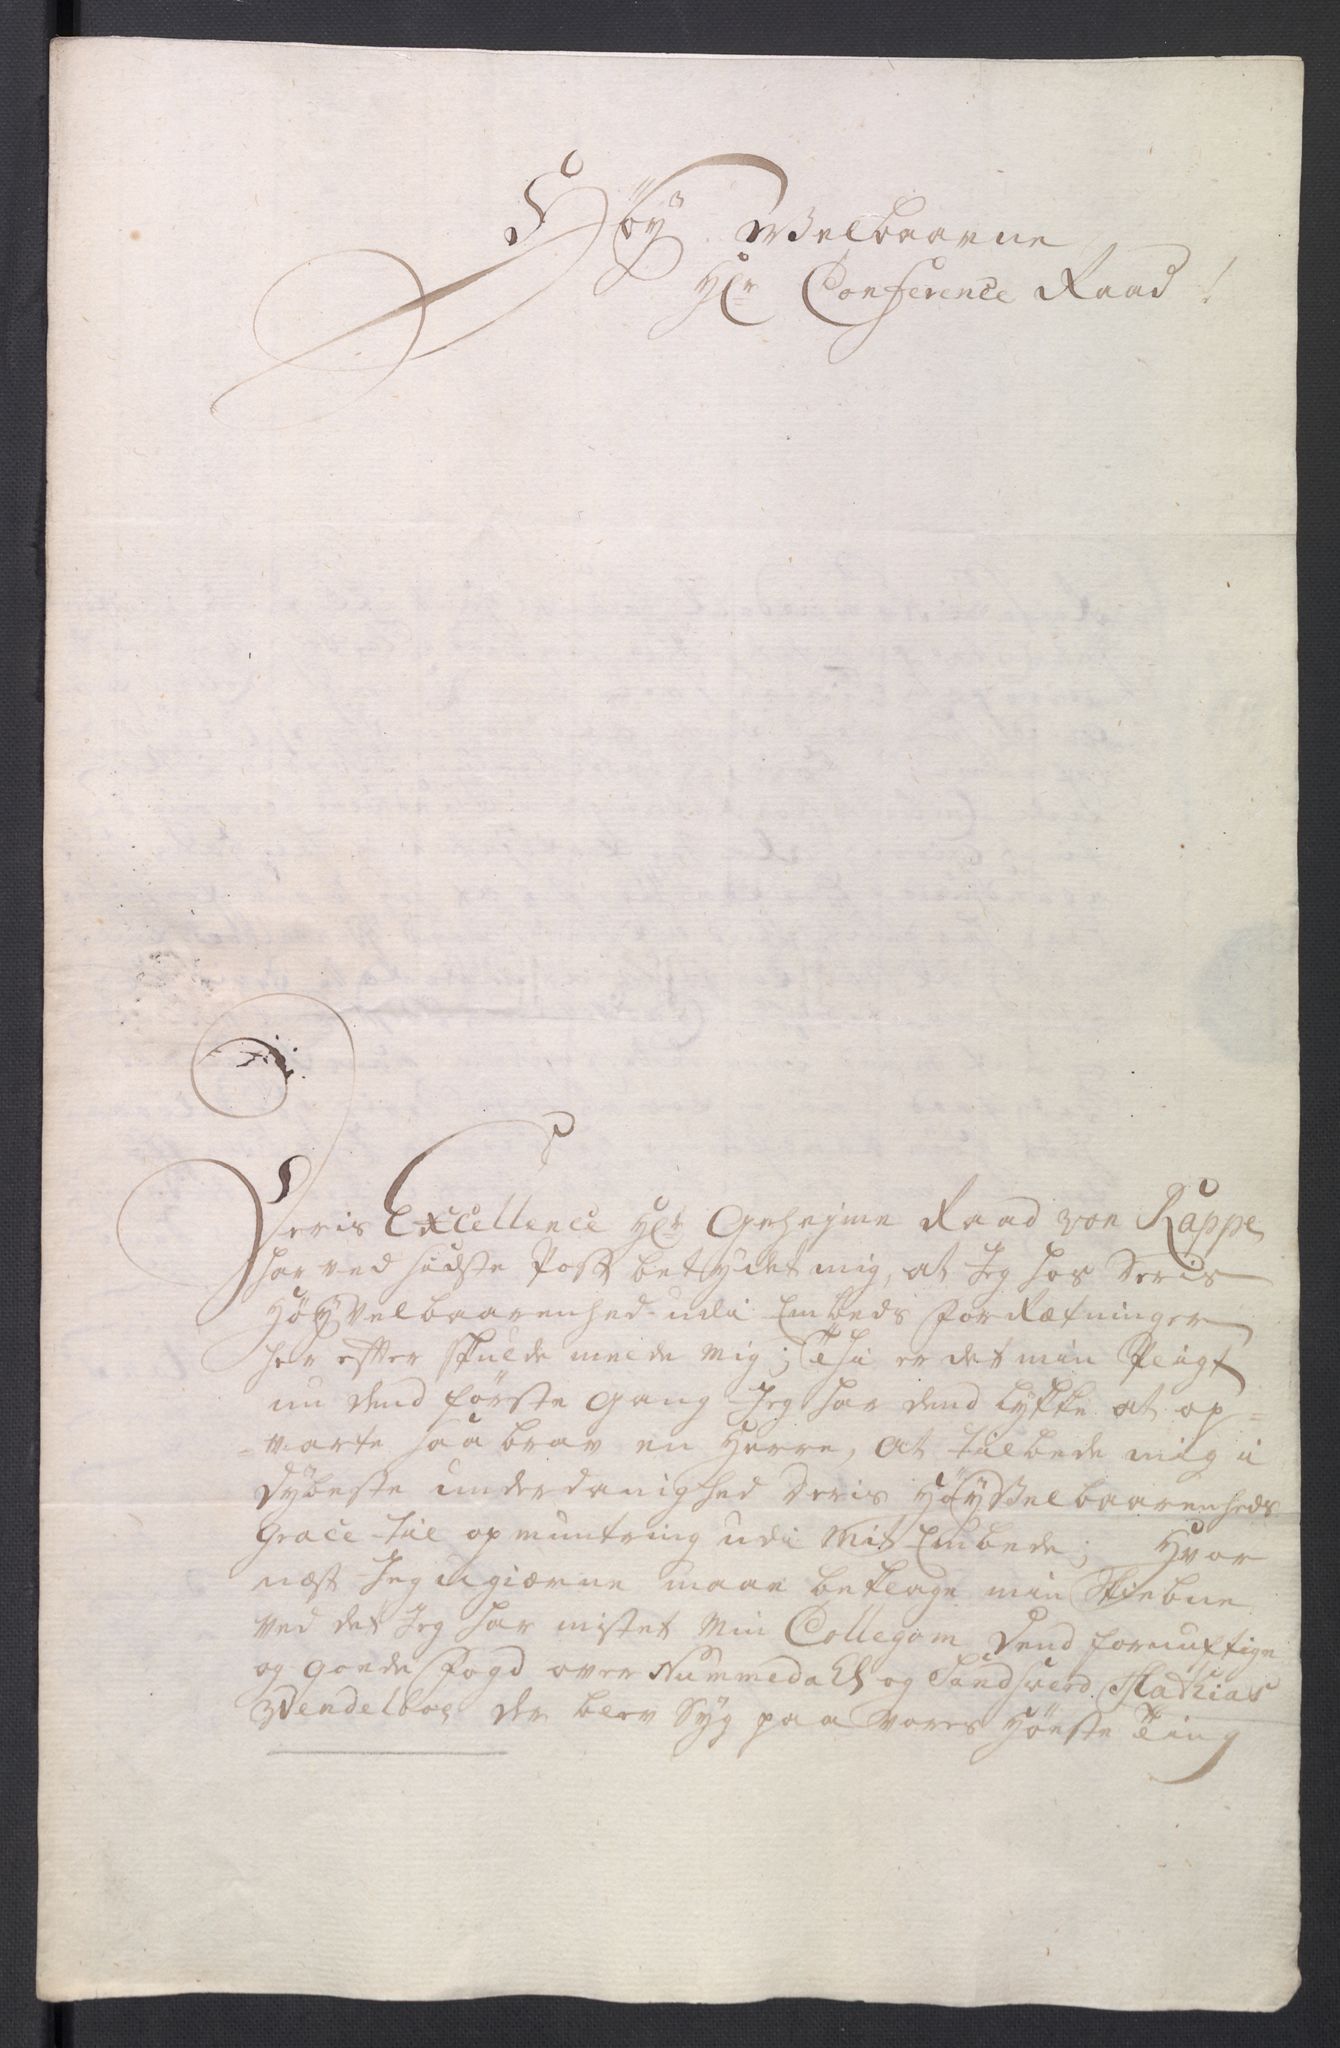 Høy Welbaarne
Hr Conference Raad!
Deris Excellence Hr Geheime Raad von Kappe
har ved sidste Post betydet mig, at Jeg hos Deris
HøyVelbaarenhed udi Embeds Forrætninger
her effter skulde melde mig; Thi er det min Pligt
nu dend første Gang Jeg har dend lykke at op=
=varte saa brav en Herre, at udbede mig i
dybeste underdanighed Deris HøyWelbaarenheds
Grace til opmuntring udi Mit Embede; Hvor
næst Jeg ugierne maae beklage min Skiebne
ved det Jeg har mistet Min Collegam dend fornuftige
og goede Fogd over Nummedahl og Sandsverd Mathias
Wendelboe, der blev Syg paa vores Høste Ting